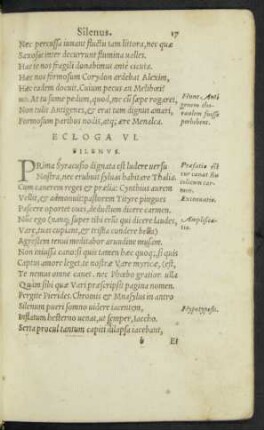 Silenus. 17
Nec percussa iuuant fluctu tam littora, nec quæ
Saxosas inter decurrunt flumina valles.
Hac te nos fragili donabimus ante cicuta.
Hæc nos formosum Corydon ardebat Alexim,
Hæc eadem docuit, Cuium pecus an Melibœi?
Mo. At tu sume pedum, quod, me cùm sæpe rogaret,
Non tulit Antigenes, & erat tum dignus amari,
Formosum paribus nodis, atq; ære Menalca.
ECLOGA VI.
SILENVS.
PRima Syracosio dignata est ludere versu
Nostra, nec erubuit syluas habitare Thalia.
Cum canerem reges & prælia: Cynthius aurem
Vellit, & admonuit: pastorem Tityre pingues
Pascere oportet oues, deductum dicere carmen.
Nũc ego (namq; super tibi erũt qui dicere laudes,
Vare, tuas cupiant, & tristia condere bella)
Agrestem tenui meditabor arundine musam.
Non iniussa cano: si quis tamen hæc quoq; si quis
Captus amore leget, te nostræ Vare myricæ,
Te nemus omne canet. nec Phœbo gratior vlla (est,
Quàm sibi quæ Vari præscripsit pagina nomen.
Pergite Pierides. Chromis & Mnasylus in antro
Silenum pueri somno videre iacentem,
Inflatum hesterno venas, ut semper, Iaccho.
Serta procul tantum capiti dilapsa iacebant,
b Et
Præfatio
Excusatio.
Hypotyposis.